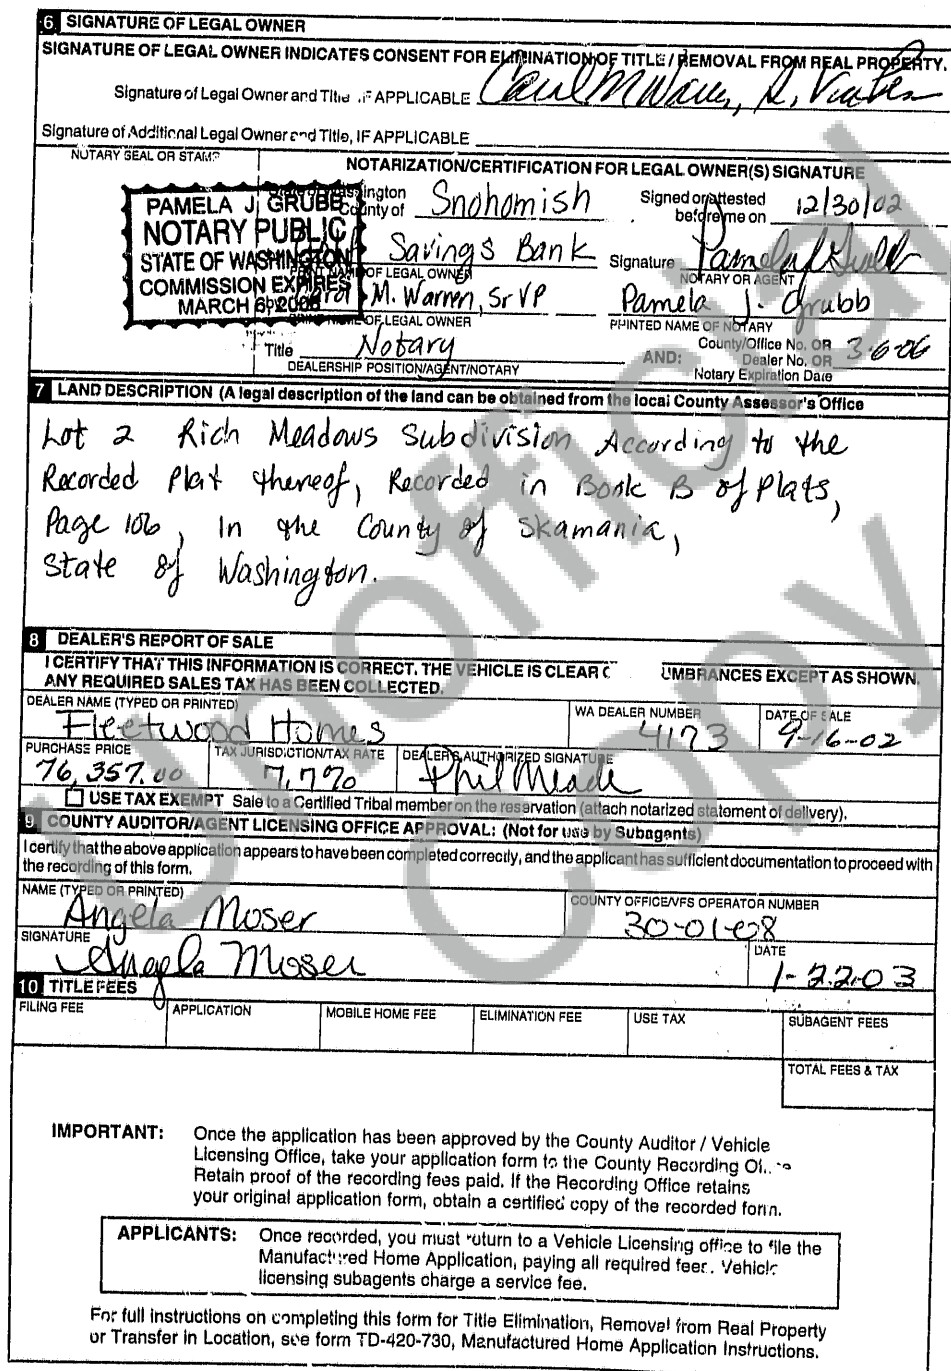 6 SIGNATURE OF LEGAL OWNER
SIGNATURE OF LEGAL OWNER INDICATES CONSENT FOR ELIMINATION OF TITLE / REMOVAL FROM REAL PROPERTY.
Signature of Legal Owner and Title, IF APPLICABLE Carol M Warren, Sr. Vice Pres
Signature of Additional Legal Owner and Title, IF APPLICABLE
NOTARY SEAL OR STAMP
NOTARIZATION/CERTIFICATION FOR LEGAL OWNER(S) SIGNATURE
PAMELA J. GRUBB
NOTARY PUBLIC
STATE OF WASHINGTON
COMMISSION EXPIRES
MARCH 6, 2006
State of Washington
County of Snohomish
Signed or attested before me on 12/30/02
Savings Bank
PRINT NAME OF LEGAL OWNER
Signature Pamela J Grubb
NOTARY OR AGENT
by Carol M. Warren, Sr VP
NAME OF LEGAL OWNER
Pamela J. Grubb
PRINTED NAME OF NOTARY
Title Notary
DEALERSHIP POSITION/AGENT/NOTARY
AND: County/Office No. OR
Dealer No. OR 3-6-06
Notary Expiration Date
7 LAND DESCRIPTION (A legal description of the land can be obtained from the local County Assessor's Office
Lot 2 Rich Meadows Subdivision According to the
Recorded Plat thereof, Recorded in Book B of Plats,
Page 106, In the County of Skamania,
State of Washington.
8 DEALER'S REPORT OF SALE
I CERTIFY THAT THIS INFORMATION IS CORRECT. THE VEHICLE IS CLEAR O UMBRANCES EXCEPT AS SHOWN.
ANY REQUIRED SALES TAX HAS BEEN COLLECTED.
DEALER NAME (TYPED OR PRINTED)
Fleetwood Homes
WA DEALER NUMBER
4173
DATE OF SALE
9-16-02
PURCHASE PRICE
76,357.00
TAX JURISDICTION/TAX RATE
7.7%
DEALER'S AUTHORIZED SIGNATURE
Phil Meade
USE TAX EXEMPT Sale to a Certified Tribal member on the reservation (attach notarized statement of delivery).
9 COUNTY AUDITOR/AGENT LICENSING OFFICE APPROVAL: (Not for use by Subagents)
I certify that the above application appears to have been completed correctly, and the applicant has sufficient documentation to proceed with
the recording of this form.
NAME (TYPED OR PRINTED)
Angela Moser
COUNTY OFFICE/VFS OPERATOR NUMBER
30-01-08
SIGNATURE
Angela Moser
DATE
1-22-03
10 TITLE FEES
FILING FEE
APPLICATION
MOBILE HOME FEE
ELIMINATION FEE
USE TAX
SUBAGENT FEES
TOTAL FEES & TAX
IMPORTANT: Once the application has been approved by the County Auditor / Vehicle
Licensing Office, take your application form to the County Recording Office
Retain proof of the recording fees paid. If the Recording Office retains
your original application form, obtain a certified copy of the recorded form.
APPLICANTS: Once recorded, you must return to a Vehicle Licensing office to file the
Manufactured Home Application, paying all required fees. Vehicle
licensing subagents charge a service fee.
For full instructions on completing this form for Title Elimination, Removal from Real Property
or Transfer in Location, see form TD-420-730, Manufactured Home Application Instructions.
Unofficial
Copy